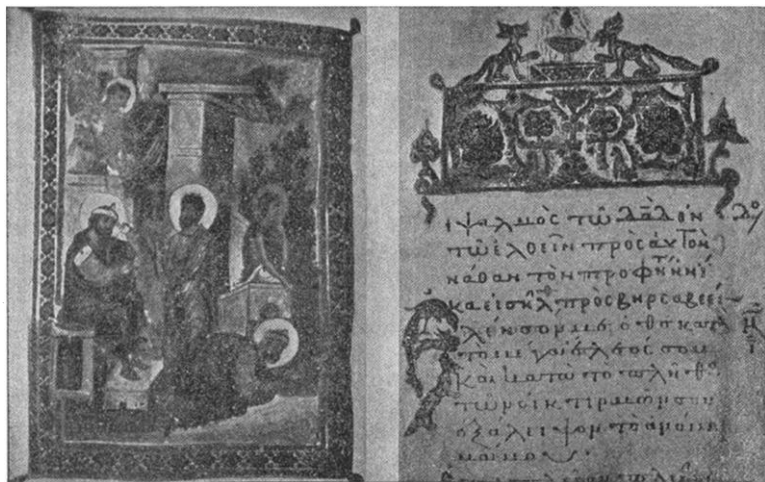 ψαλμὸς τῶ δᾱδ ἐν
τῶ ἐλθεῖν πρὸς ἀυτὸν
νάθαν τὸν προφήτην ἡνί
κα εἰσῆλθ πρὸς βηρσαβεέ
λέησόν με ὁ θς κατὰ
τὸ μέγα ἔλεός σου
καὶ κατὰ τὸ πλῆθο
τῶν οἰκτιρμῶν σου
ἐξάλειψον τὸ ἀνόμη
μά μου